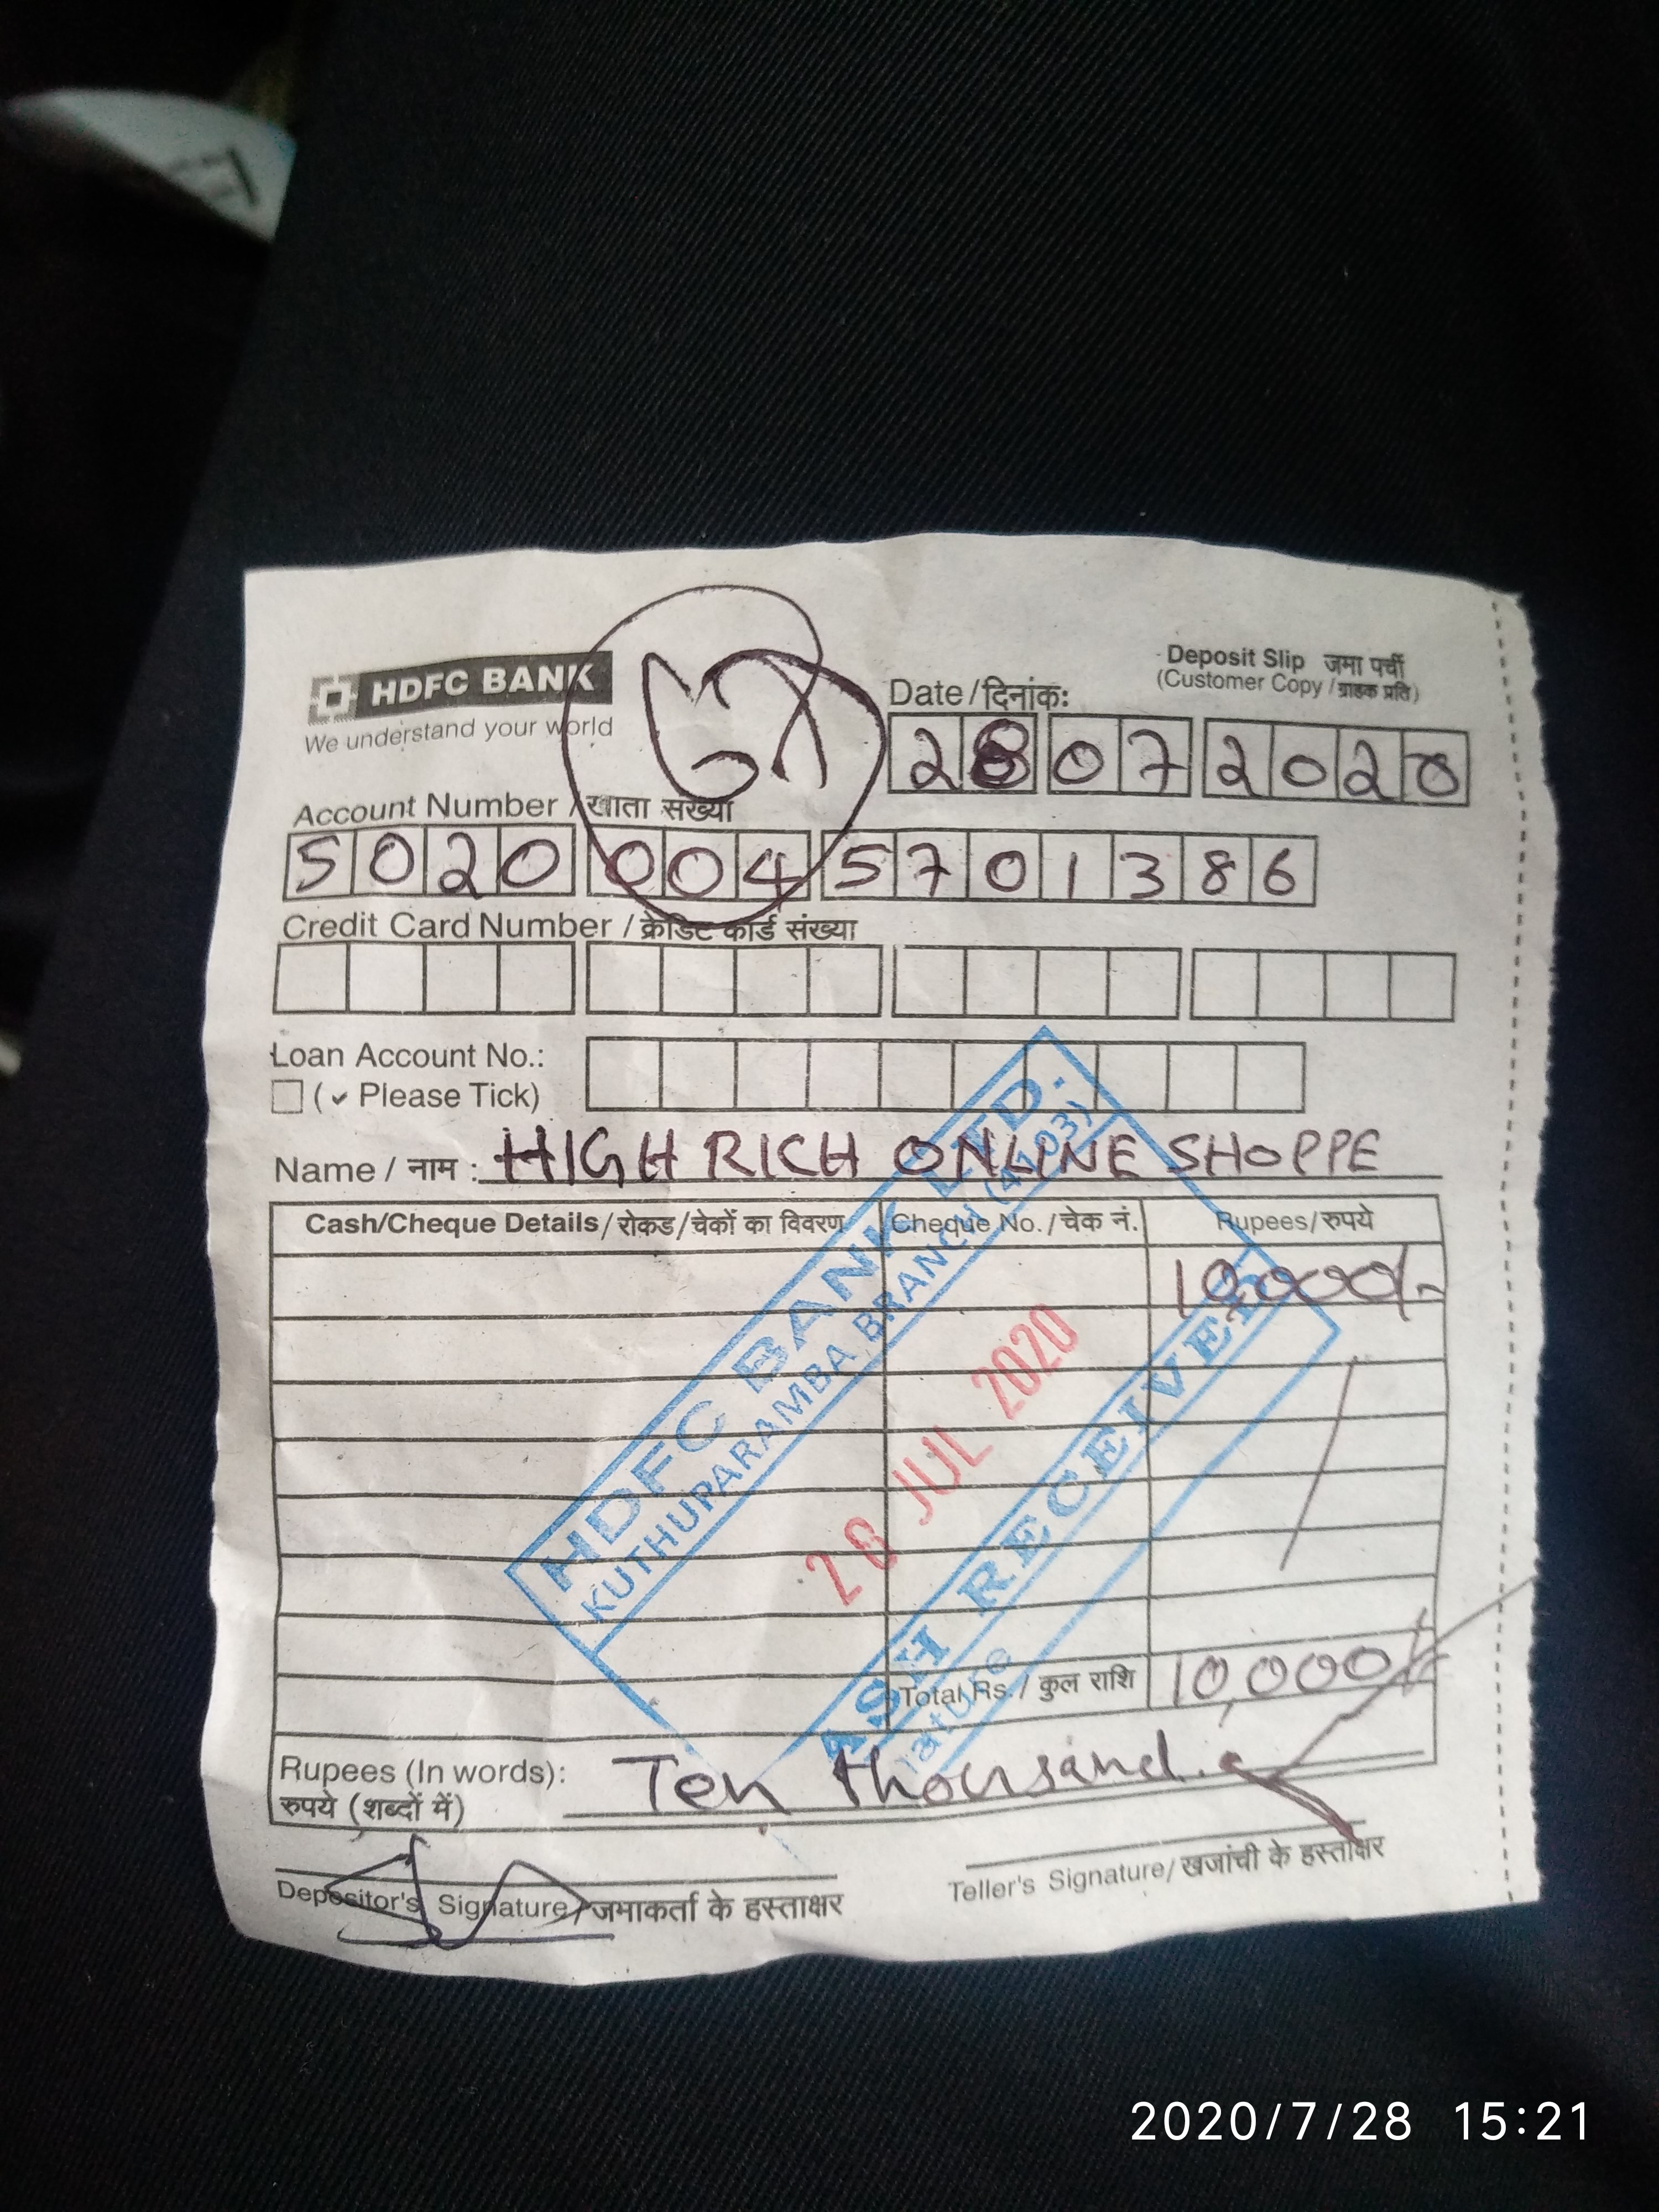 HDFC BANK
We understand your world
Deposit Slip जमा पर्ची
(Customer Copy / ग्राहक प्रति)
Date / दिनांक:
28 07 2020
Account Number / खाता संख्या
5020 004 5701386
Credit Card Number / क्रेडिट कार्ड संख्या
Loan Account No.:
( ✓ Please Tick)
Name / नाम : HIGH RICH ONLINE SHOPPE
Cash/Cheque Details / रोकड / चेकों का विवरण Cheque No. / चेक नं. Rupees / रुपये
10,000/-
HDFC BANK LTD.
KUTHUPARAMBA BRANCH (4103)
28 JUL 2020
CASH RECEIVED
Total Rs. / कुल राशि 10,000/-
Rupees (In words): Ten thousand.
रुपये (शब्दों में)
Depositor's Signature / जमाकर्ता के हस्ताक्षर
Teller's Signature / खजांची के हस्ताक्षर
2020/7/28 15:21